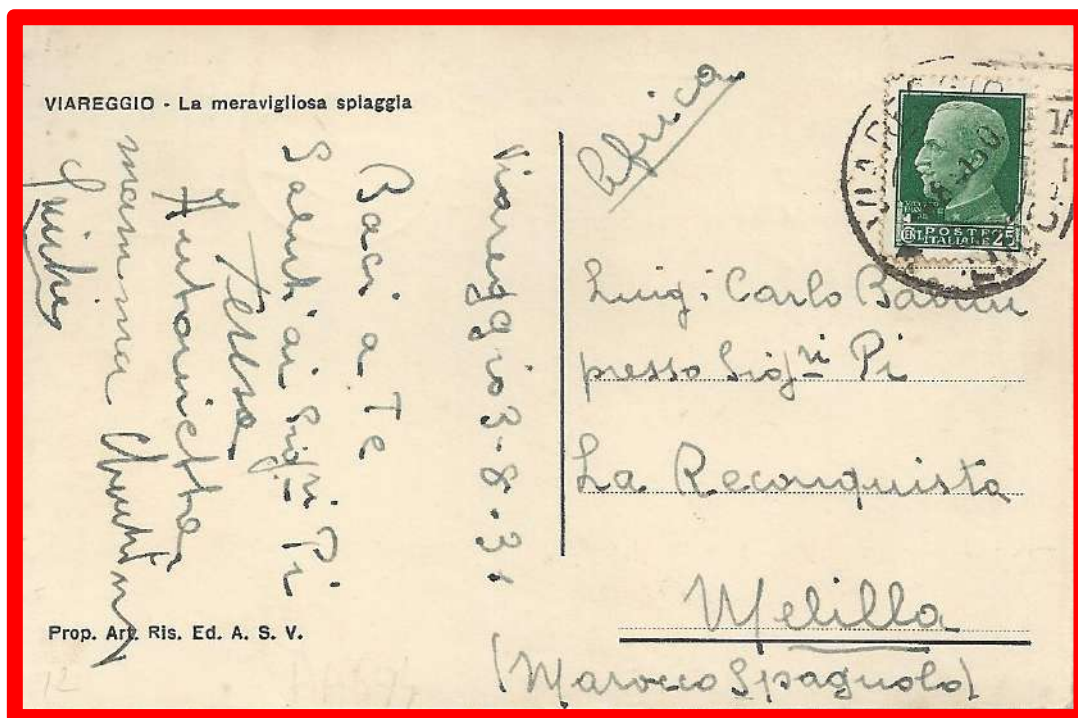 VIAREGGIO - La meravigliosa spiaggia
Viareggio 3-8-31
Baci a Te
Saluti ai Sigri Pi
Teresa
Antonietta
mamma
Prop. Art. Ris. Ed. A. S. V.
Africa
POSTE
CENT. ITALIANE 25
Luigi Carlo
presso Sigri Pi
La Reconquista
Melilla
(Marocco Spagnolo)
12